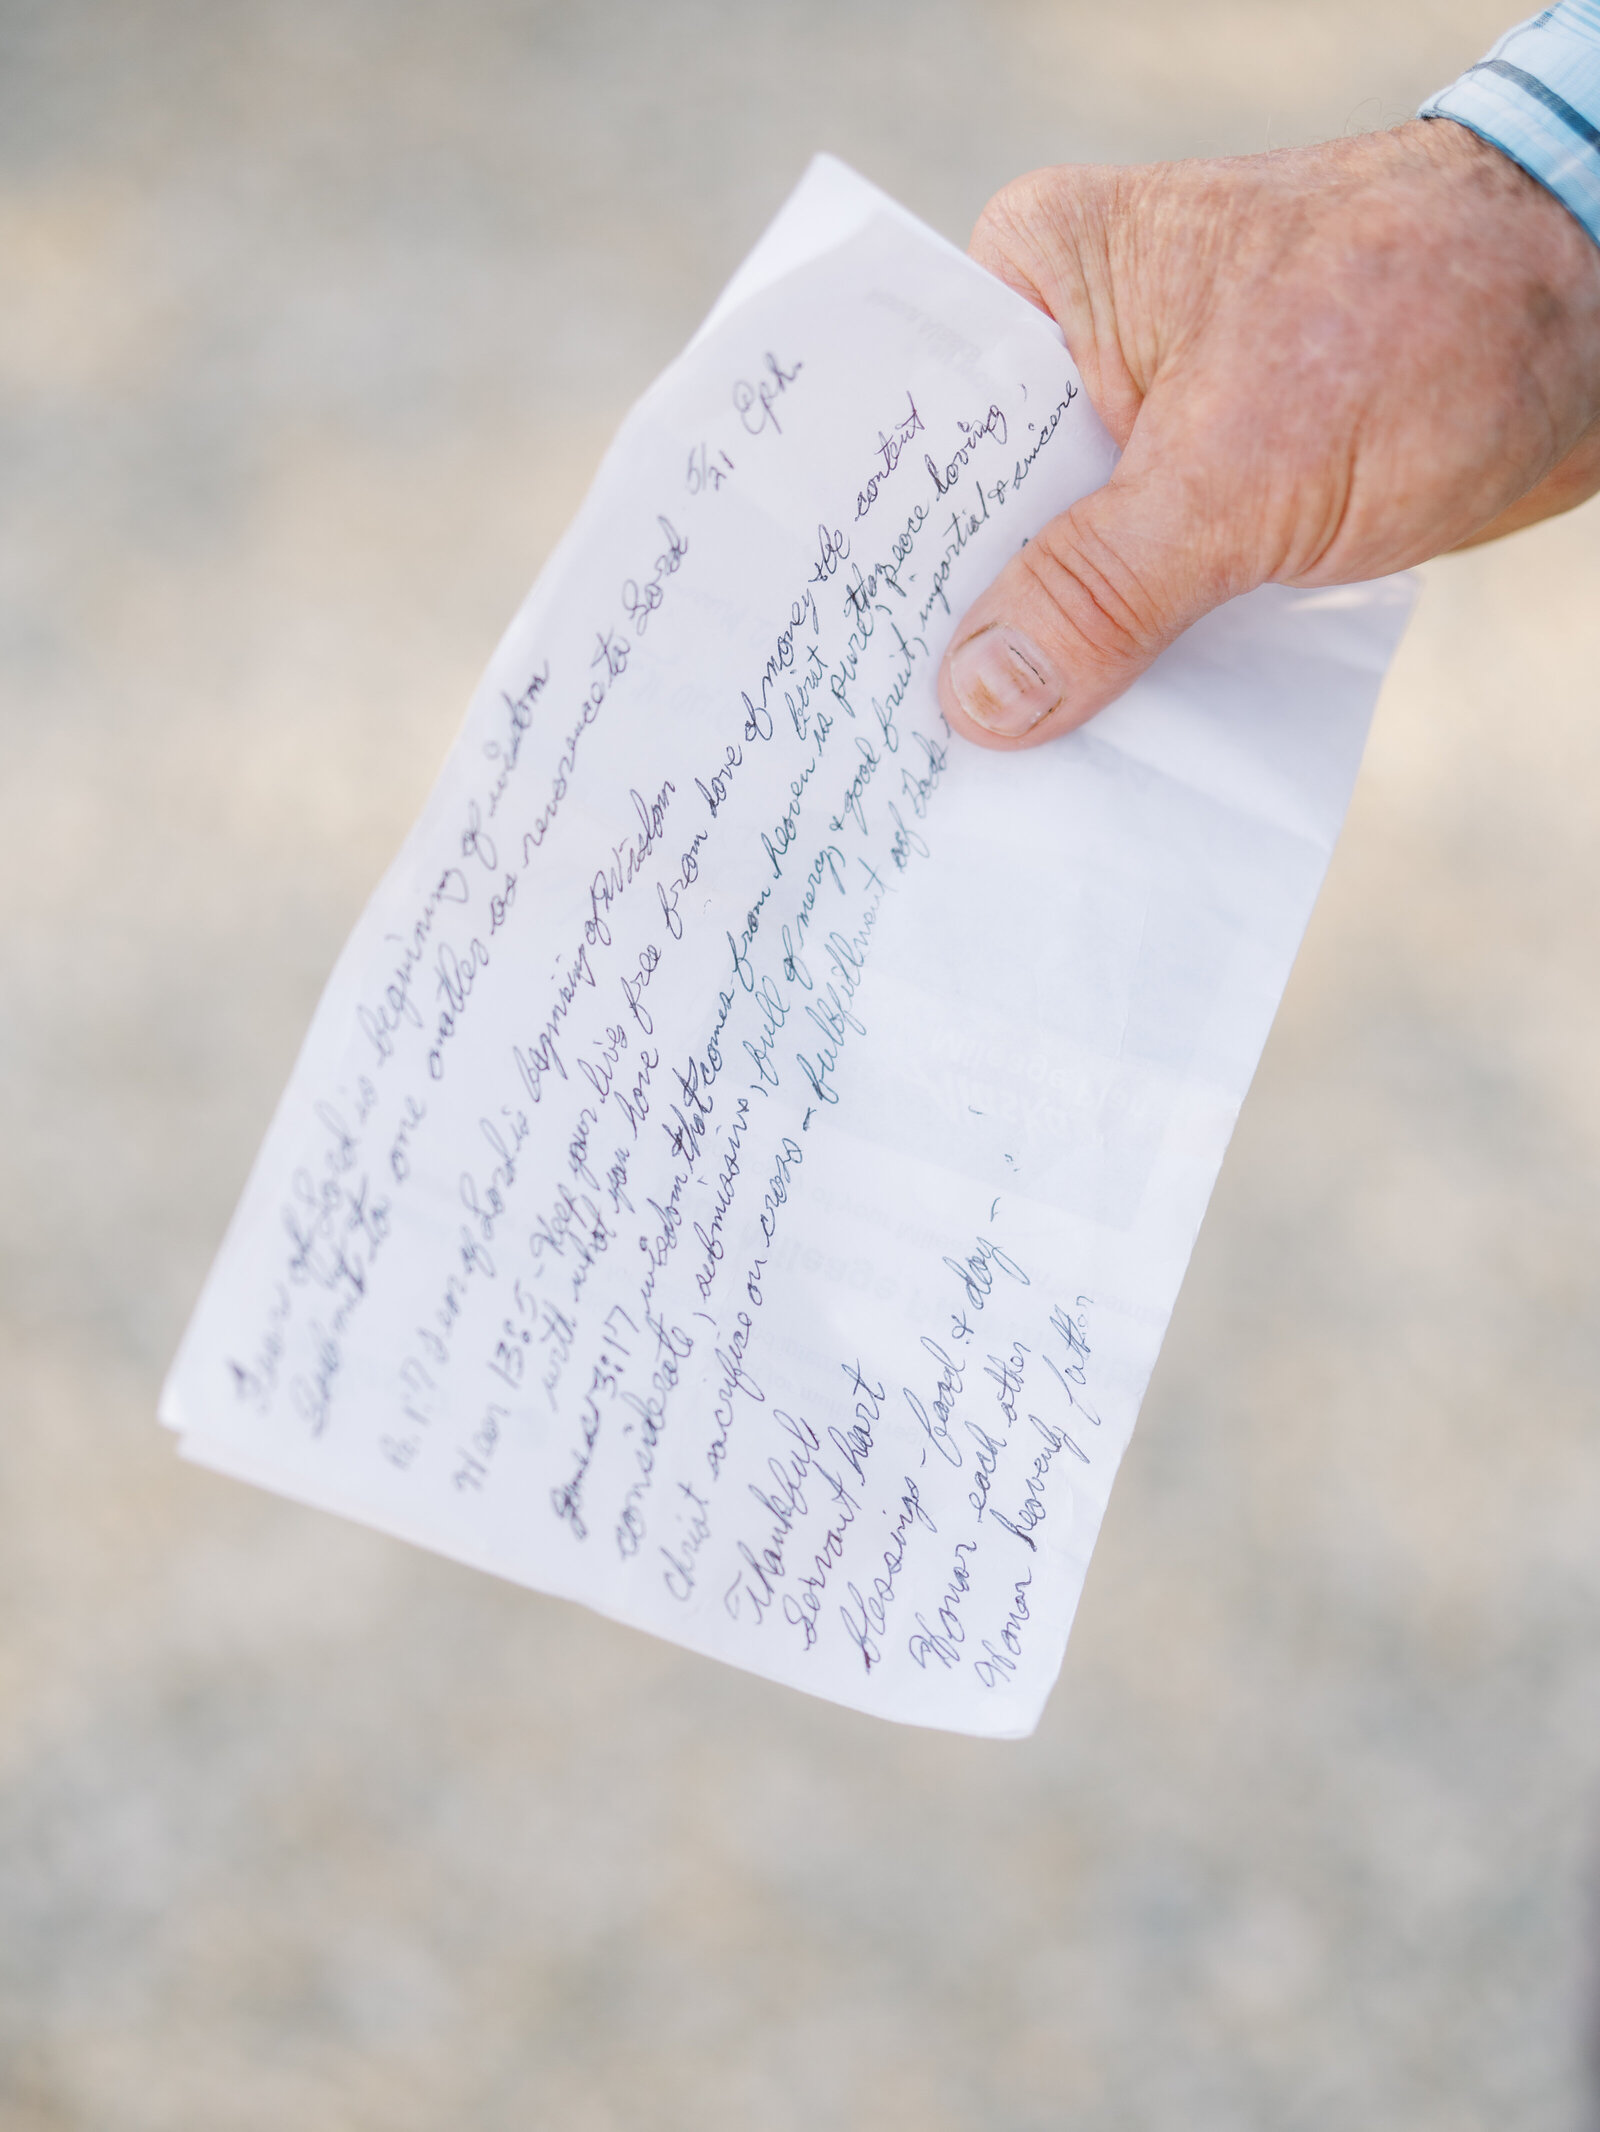 Fear of Lord is beginning of wisdom
Submit to one another as reverence to Lord 5/21 Eph.
Pr. 1:7 Fear of Lord is beginning of Wisdom
Heb 13:5 - Keep your lives free from love of money & be content
with what you have
first
James 3:17 wisdom that comes from heaven is pure, then peace loving,
considerate, submissive, full of mercy & good fruit, impartial & sincere
Christ sacrifice on cross - fulfillment of
Thankful
Servant heart
blessings - food & day -
Honor each other
Honor heavenly father